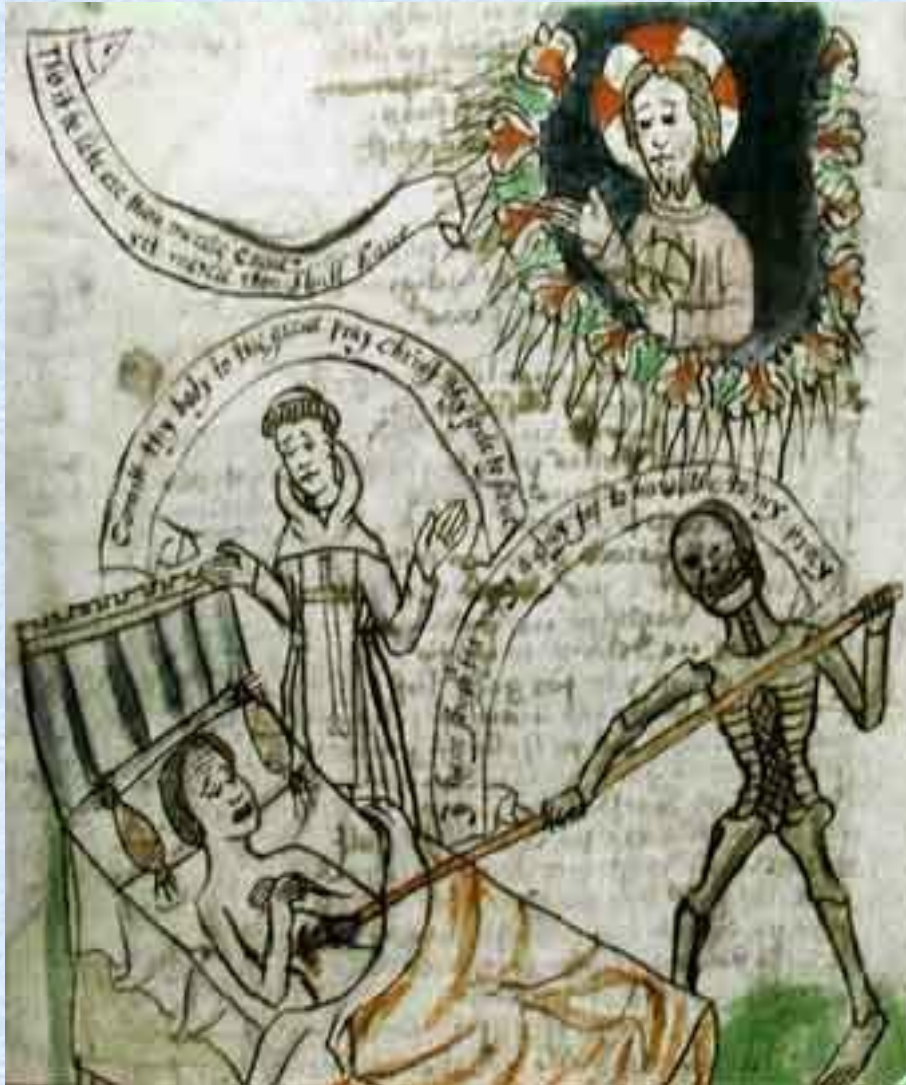 Tho it be late ere thou mercie crave
yit mercie thou shall have
Comit thy body to the grave pray Christ thy to save
I have the a day for to have the to my pray